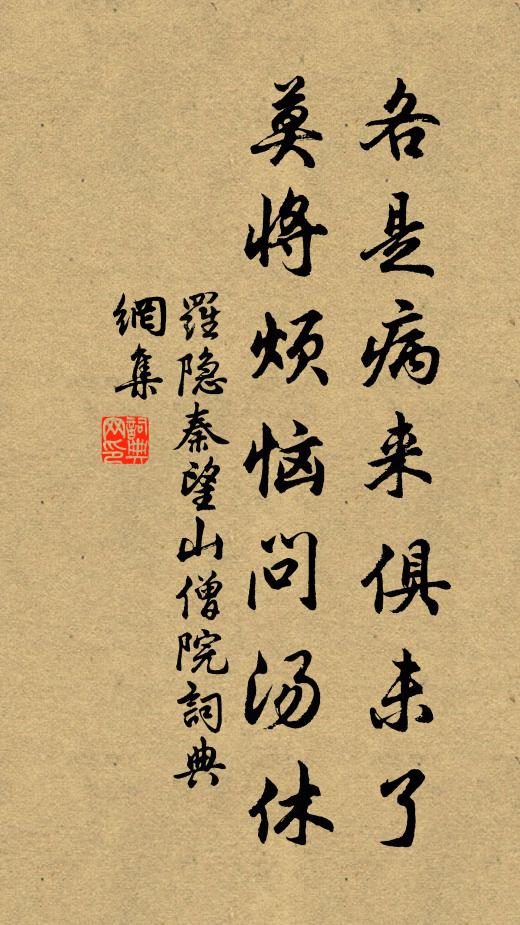 各是病来俱未了
莫将烦恼问汤休
羅隐秦望山僧院詞典
網集
詞典
网印